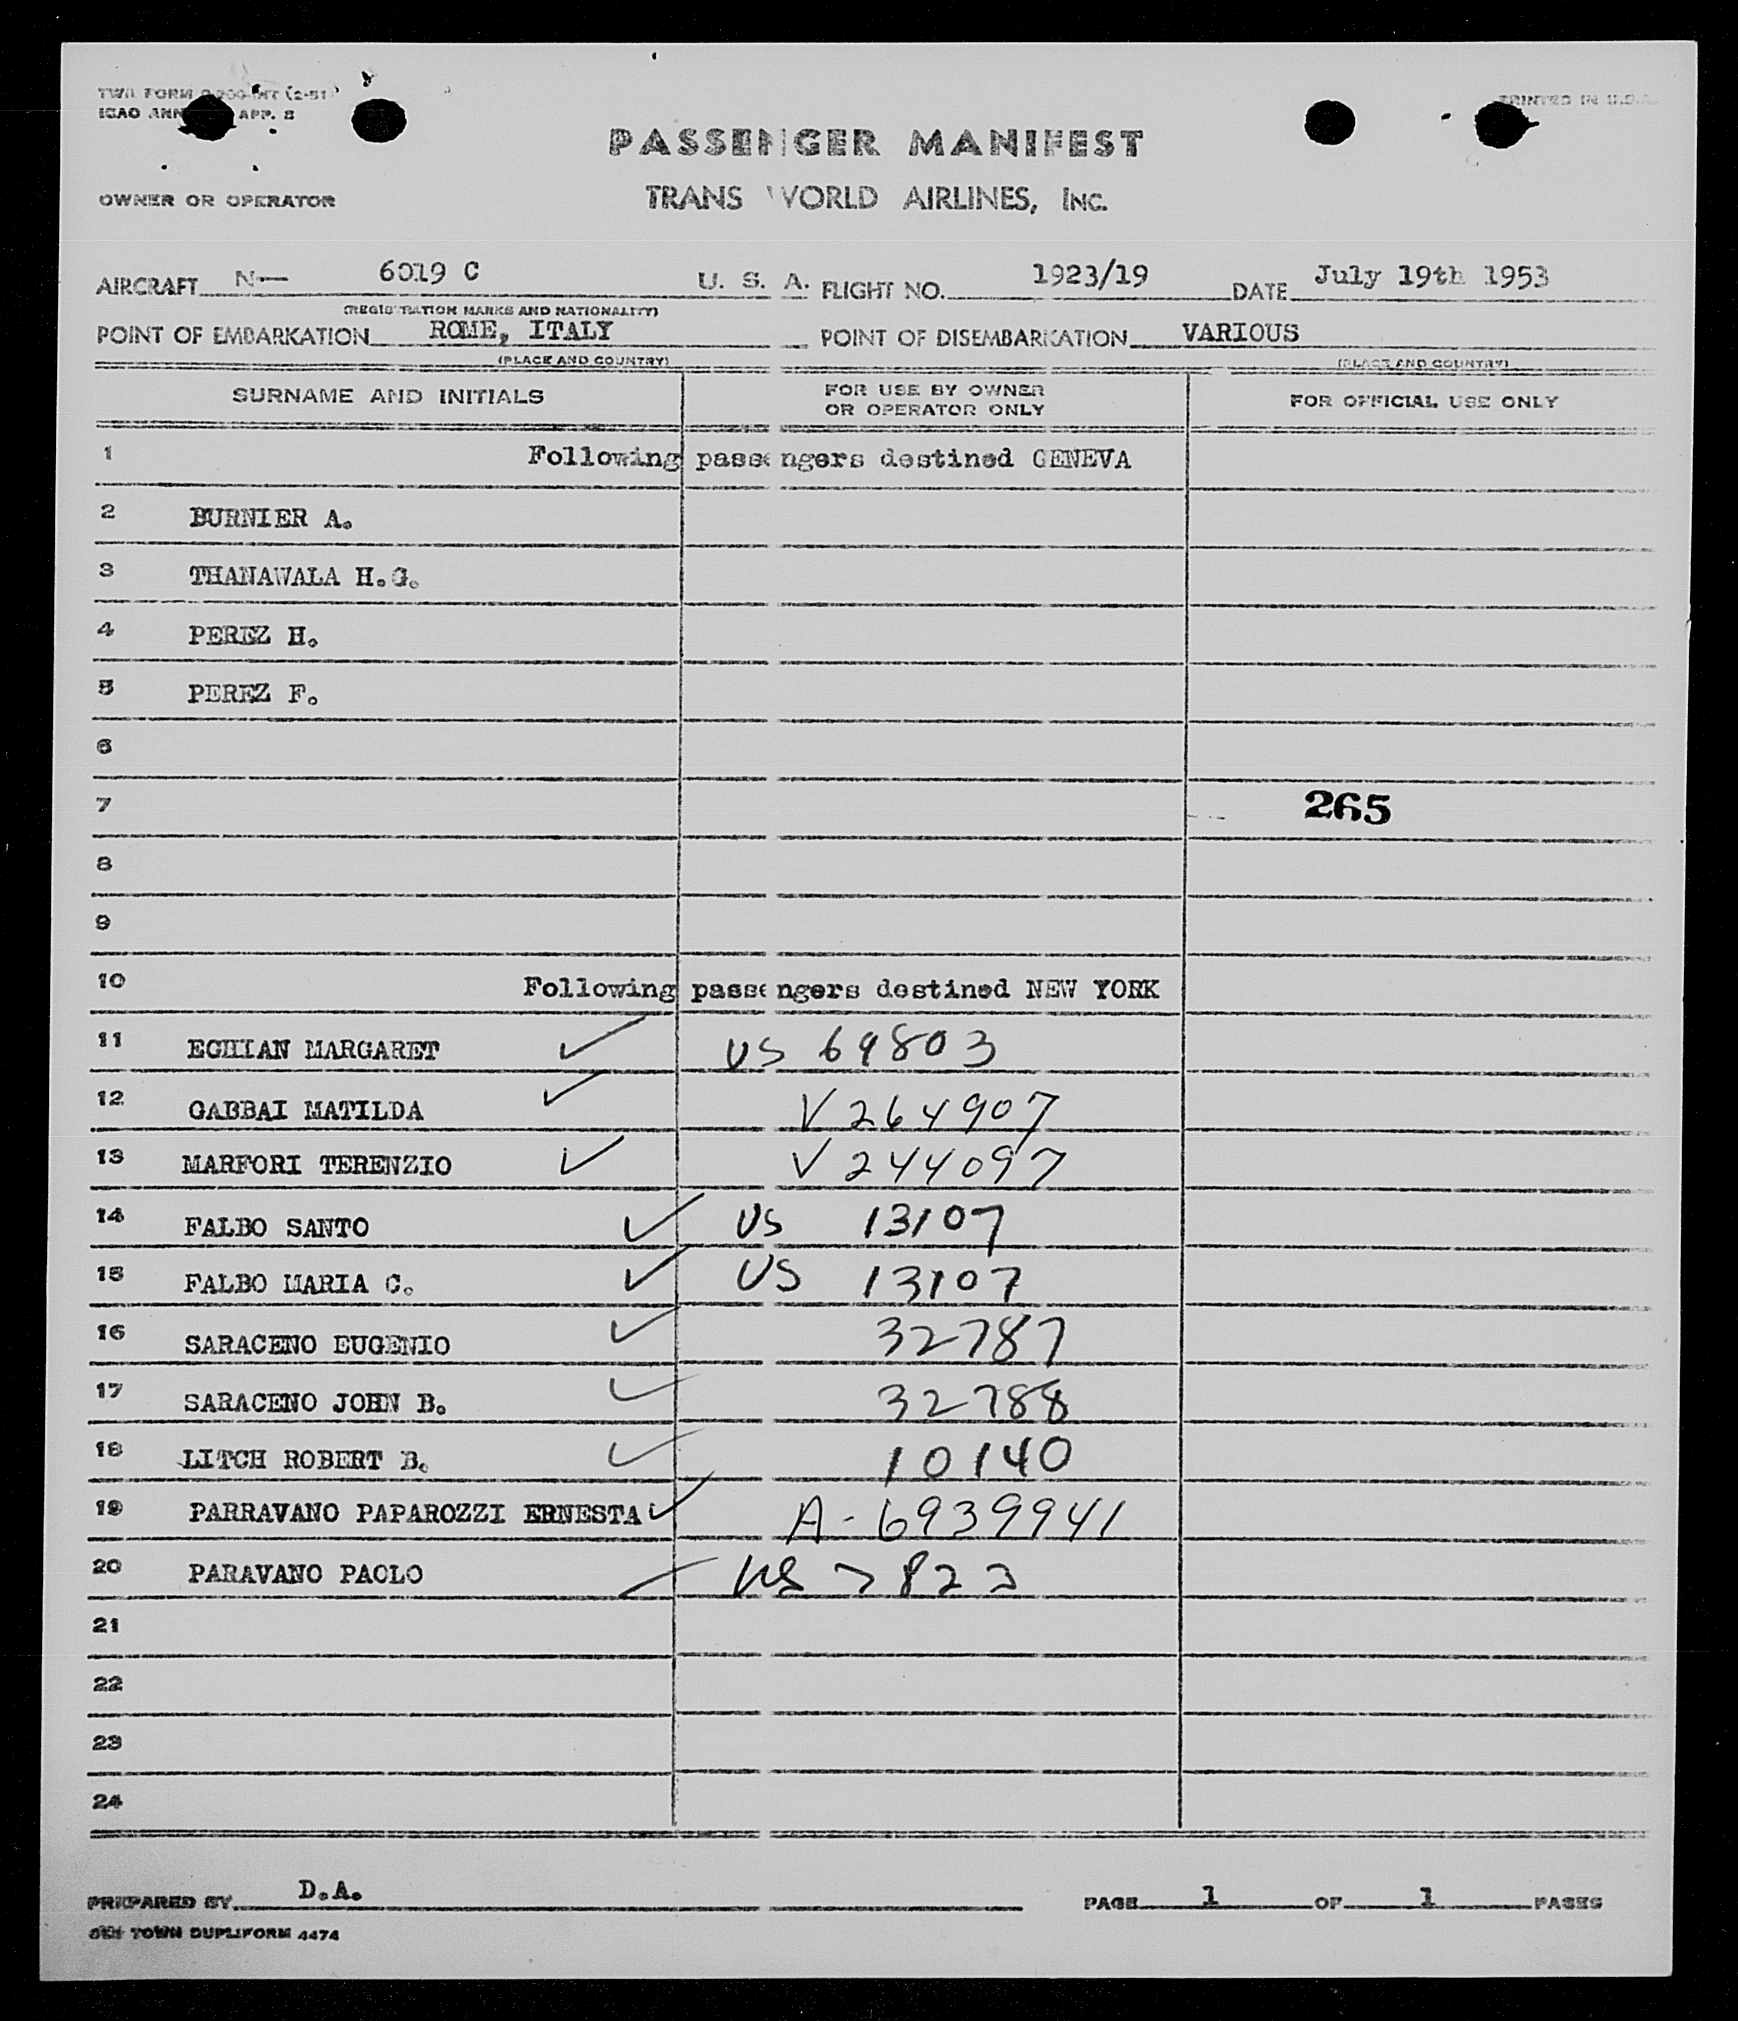 TWA FORM
ICAO ANN APP. 8
PRINTED IN U.S.A.
PASSENGER MANIFEST
OWNER OR OPERATOR
TRANS WORLD AIRLINES, INC.
AIRCRAFT N— 6019 C U. S. A. FLIGHT NO. 1923/19 DATE July 19th 1953
(REGISTRATION MARKS AND NATIONALITY)
POINT OF EMBARKATION ROME, ITALY POINT OF DISEMBARKATION VARIOUS
(PLACE AND COUNTRY) (PLACE AND COUNTRY)
SURNAME AND INITIALS FOR USE BY OWNER OR OPERATOR ONLY FOR OFFICIAL USE ONLY
1 Following passengers destined GENEVA
2 BURNIER A.
3 THANAWALA H.G.
4 PEREZ H.
5 PEREZ F.
6
7 265
8
9
10 Following passengers destined NEW YORK
11 EGHIAN MARGARET ✓ US 69803
12 GABBAI MATILDA ✓ V 264907
13 MARFORI TERENZIO ✓ V 244097
14 FALBO SANTO ✓ US 13107
15 FALBO MARIA C. ✓ US 13107
16 SARACENO EUGENIO ✓ 32787
17 SARACENO JOHN B. ✓ 32788
18 LITCH ROBERT B. ✓ 10140
19 PARRAVANO PAPAROZZI ERNESTA ✓ A-6939941
20 PARAVANO PAOLO ✓ US 7822
21
22
23
24
PREPARED BY D.A. PAGE 1 OF 1 PAGES
TOWN DUPLIFORM 4474